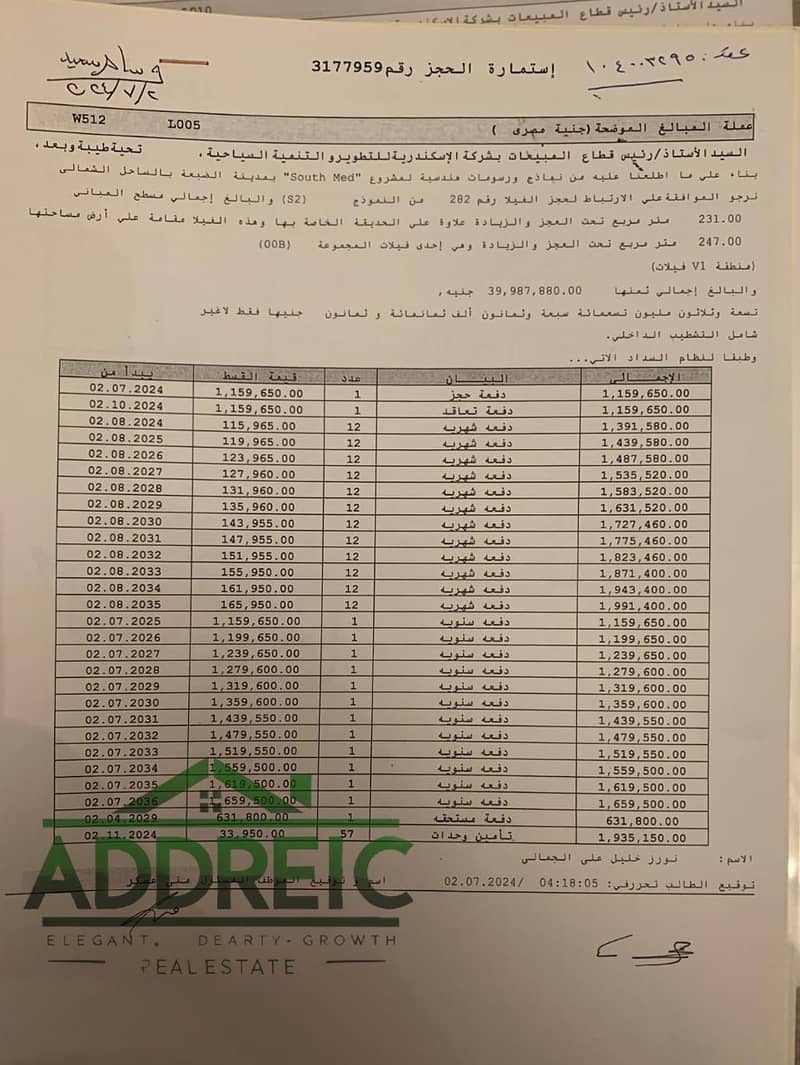 السيد الأستاذ/رئيس قطاع المبيعات بشركة
استمارة الحجز رقم 3177959
عملة المبالغ الموضحة (جنية مصرى )
L005
W512
السيد الأستاذ/رئيس قطاع المبيعات بشركة الإسكندرية للتطوير و التنمية السياحية، تحية طيبة وبعد،
بناء علي ما اطلعنا عليه من نماذج ورسومات هندسية لمشروع "South Med" بمدينة الضبعة بالساحل الشمالى
نرجو الموافقة علي الارتباط لحجز الفيلا رقم 282 من النموذج (S2) والبالغ إجمالي مسطح المباني
231.00 متر مربع تحت العجز والزيادة علاوة علي الحديقة الخاصة بها وهذه الفيلا مقامة علي أرض مساحتها
247.00 متر مربع تحت العجز والزيادة وهي إحدى فيلات المجموعة (00B)
(منطقة V1 فيلات)
والبالغ إجمالي ثمنها 39,987,880.00 جنيه,
تسعة وثلاثون مليون تسعمائة سبعة وثمانون ألف ثمانمائة و ثمانون جنيها فقط لاغير
شامل التشطيب الداخلي.
وطبقا لنظام السداد الاتي...
الإجمـــالى البيـــــان عدد قيمة القسط يبدأ من
1,159,650.00 دفعة حجز 1 1,159,650.00 02.07.2024
1,159,650.00 دفعة تعاقد 1 1,159,650.00 02.10.2024
1,391,580.00 دفعه شهريه 12 115,965.00 02.08.2024
1,439,580.00 دفعه شهريه 12 119,965.00 02.08.2025
1,487,580.00 دفعه شهريه 12 123,965.00 02.08.2026
1,535,520.00 دفعه شهريه 12 127,960.00 02.08.2027
1,583,520.00 دفعه شهريه 12 131,960.00 02.08.2028
1,631,520.00 دفعه شهريه 12 135,960.00 02.08.2029
1,727,460.00 دفعه شهريه 12 143,955.00 02.08.2030
1,775,460.00 دفعه شهريه 12 147,955.00 02.08.2031
1,823,460.00 دفعه شهريه 12 151,955.00 02.08.2032
1,871,400.00 دفعه شهريه 12 155,950.00 02.08.2033
1,943,400.00 دفعه شهريه 12 161,950.00 02.08.2034
1,991,400.00 دفعه شهريه 12 165,950.00 02.08.2035
1,159,650.00 دفعه سنويه 1 1,159,650.00 02.07.2025
1,199,650.00 دفعه سنويه 1 1,199,650.00 02.07.2026
1,239,650.00 دفعه سنويه 1 1,239,650.00 02.07.2027
1,279,600.00 دفعه سنويه 1 1,279,600.00 02.07.2028
1,319,600.00 دفعه سنويه 1 1,319,600.00 02.07.2029
1,359,600.00 دفعه سنويه 1 1,359,600.00 02.07.2030
1,439,550.00 دفعه سنويه 1 1,439,550.00 02.07.2031
1,479,550.00 دفعه سنويه 1 1,479,550.00 02.07.2032
1,519,550.00 دفعه سنويه 1 1,519,550.00 02.07.2033
1,559,500.00 دفعه سنويه 1 1,559,500.00 02.07.2034
1,619,500.00 دفعه سنويه 1 1,619,500.00 02.07.2035
1,659,500.00 دفعه سنويه 1 1,659,500.00 02.07.2036
631,800.00 دفعة مستحقه 1 631,800.00 02.04.2029
1,935,150.00 تأمين وحدات 57 33,950.00 02.11.2024
الاسم: نورز خليل على الجمالى
توقيع الطالب تحررفي: 04:18:05 /02.07.2024 اسم و توقيع الموظف المسئول منى عسكر
ADDREIC
ELEGANT, DEARTY-GROWTH
REALESTATE